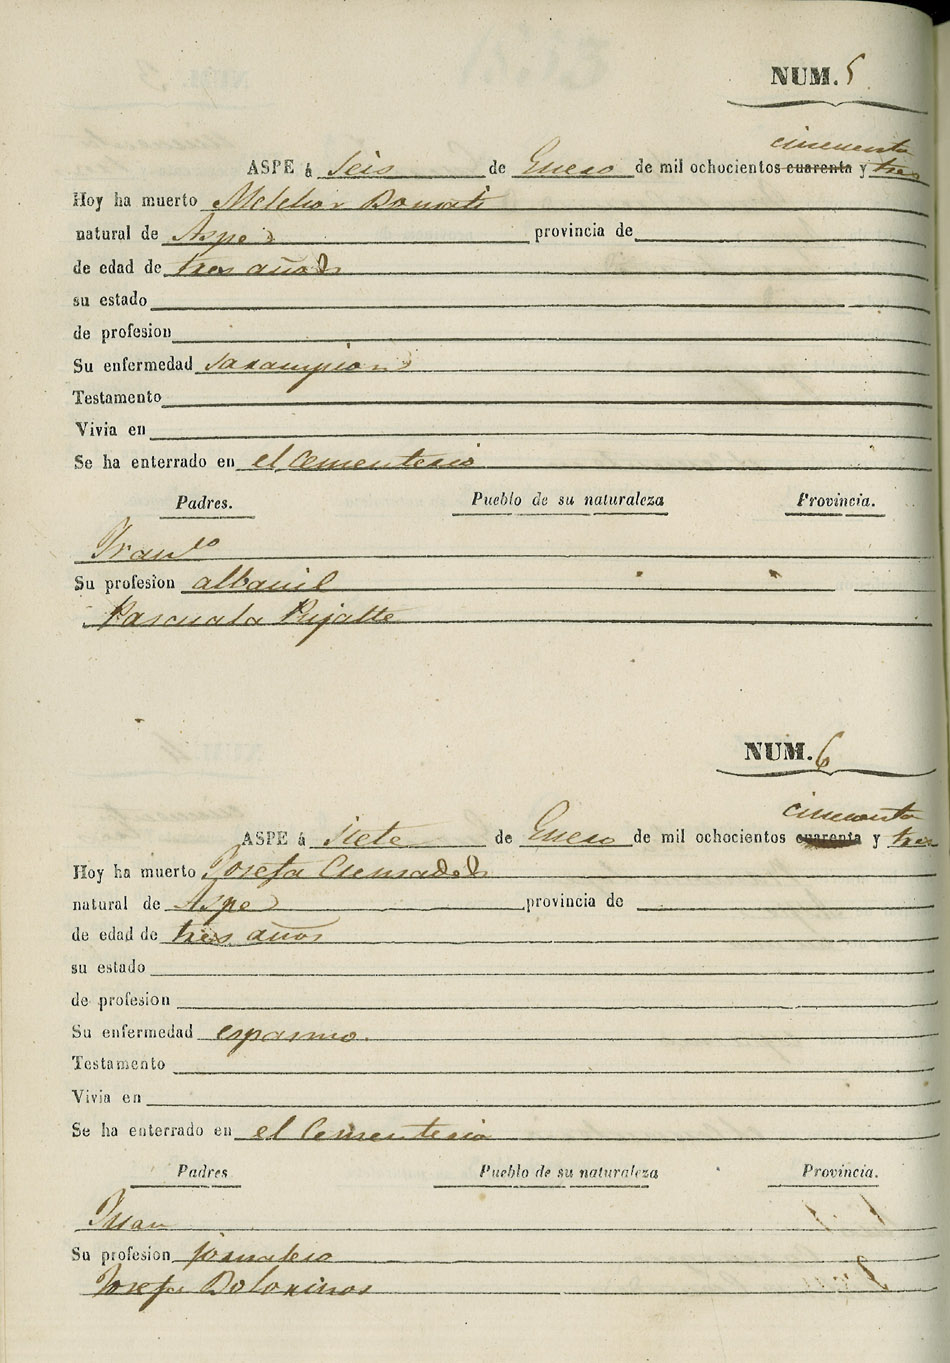 NUM. 5
cincuenta
ASPE á Seis de Enero de mil ochocientos cuarenta y tres
Hoy ha muerto Melchor
natural de Aspe provincia de
de edad de tres años
su estado
de profesion
Su enfermedad sarampion
Testamento
Vivia en
Se ha enterrado en el Cementerio
Padres. Pueblo de su naturaleza Provincia.
Franco
Su profesion albañil
Pascuala Pujalte
NUM. 6
cincuenta
ASPE á Siete de Enero de mil ochocientos cuarenta y tres
Hoy ha muerto Josefa Cremades
natural de Aspe provincia de
de edad de tres años
su estado
de profesion
Su enfermedad espasmo.
Testamento
Vivia en
Se ha enterrado en el Cementerio
Padres Pueblo de su naturaleza Provincia.
Juan
Su profesion jornalero
Josefa